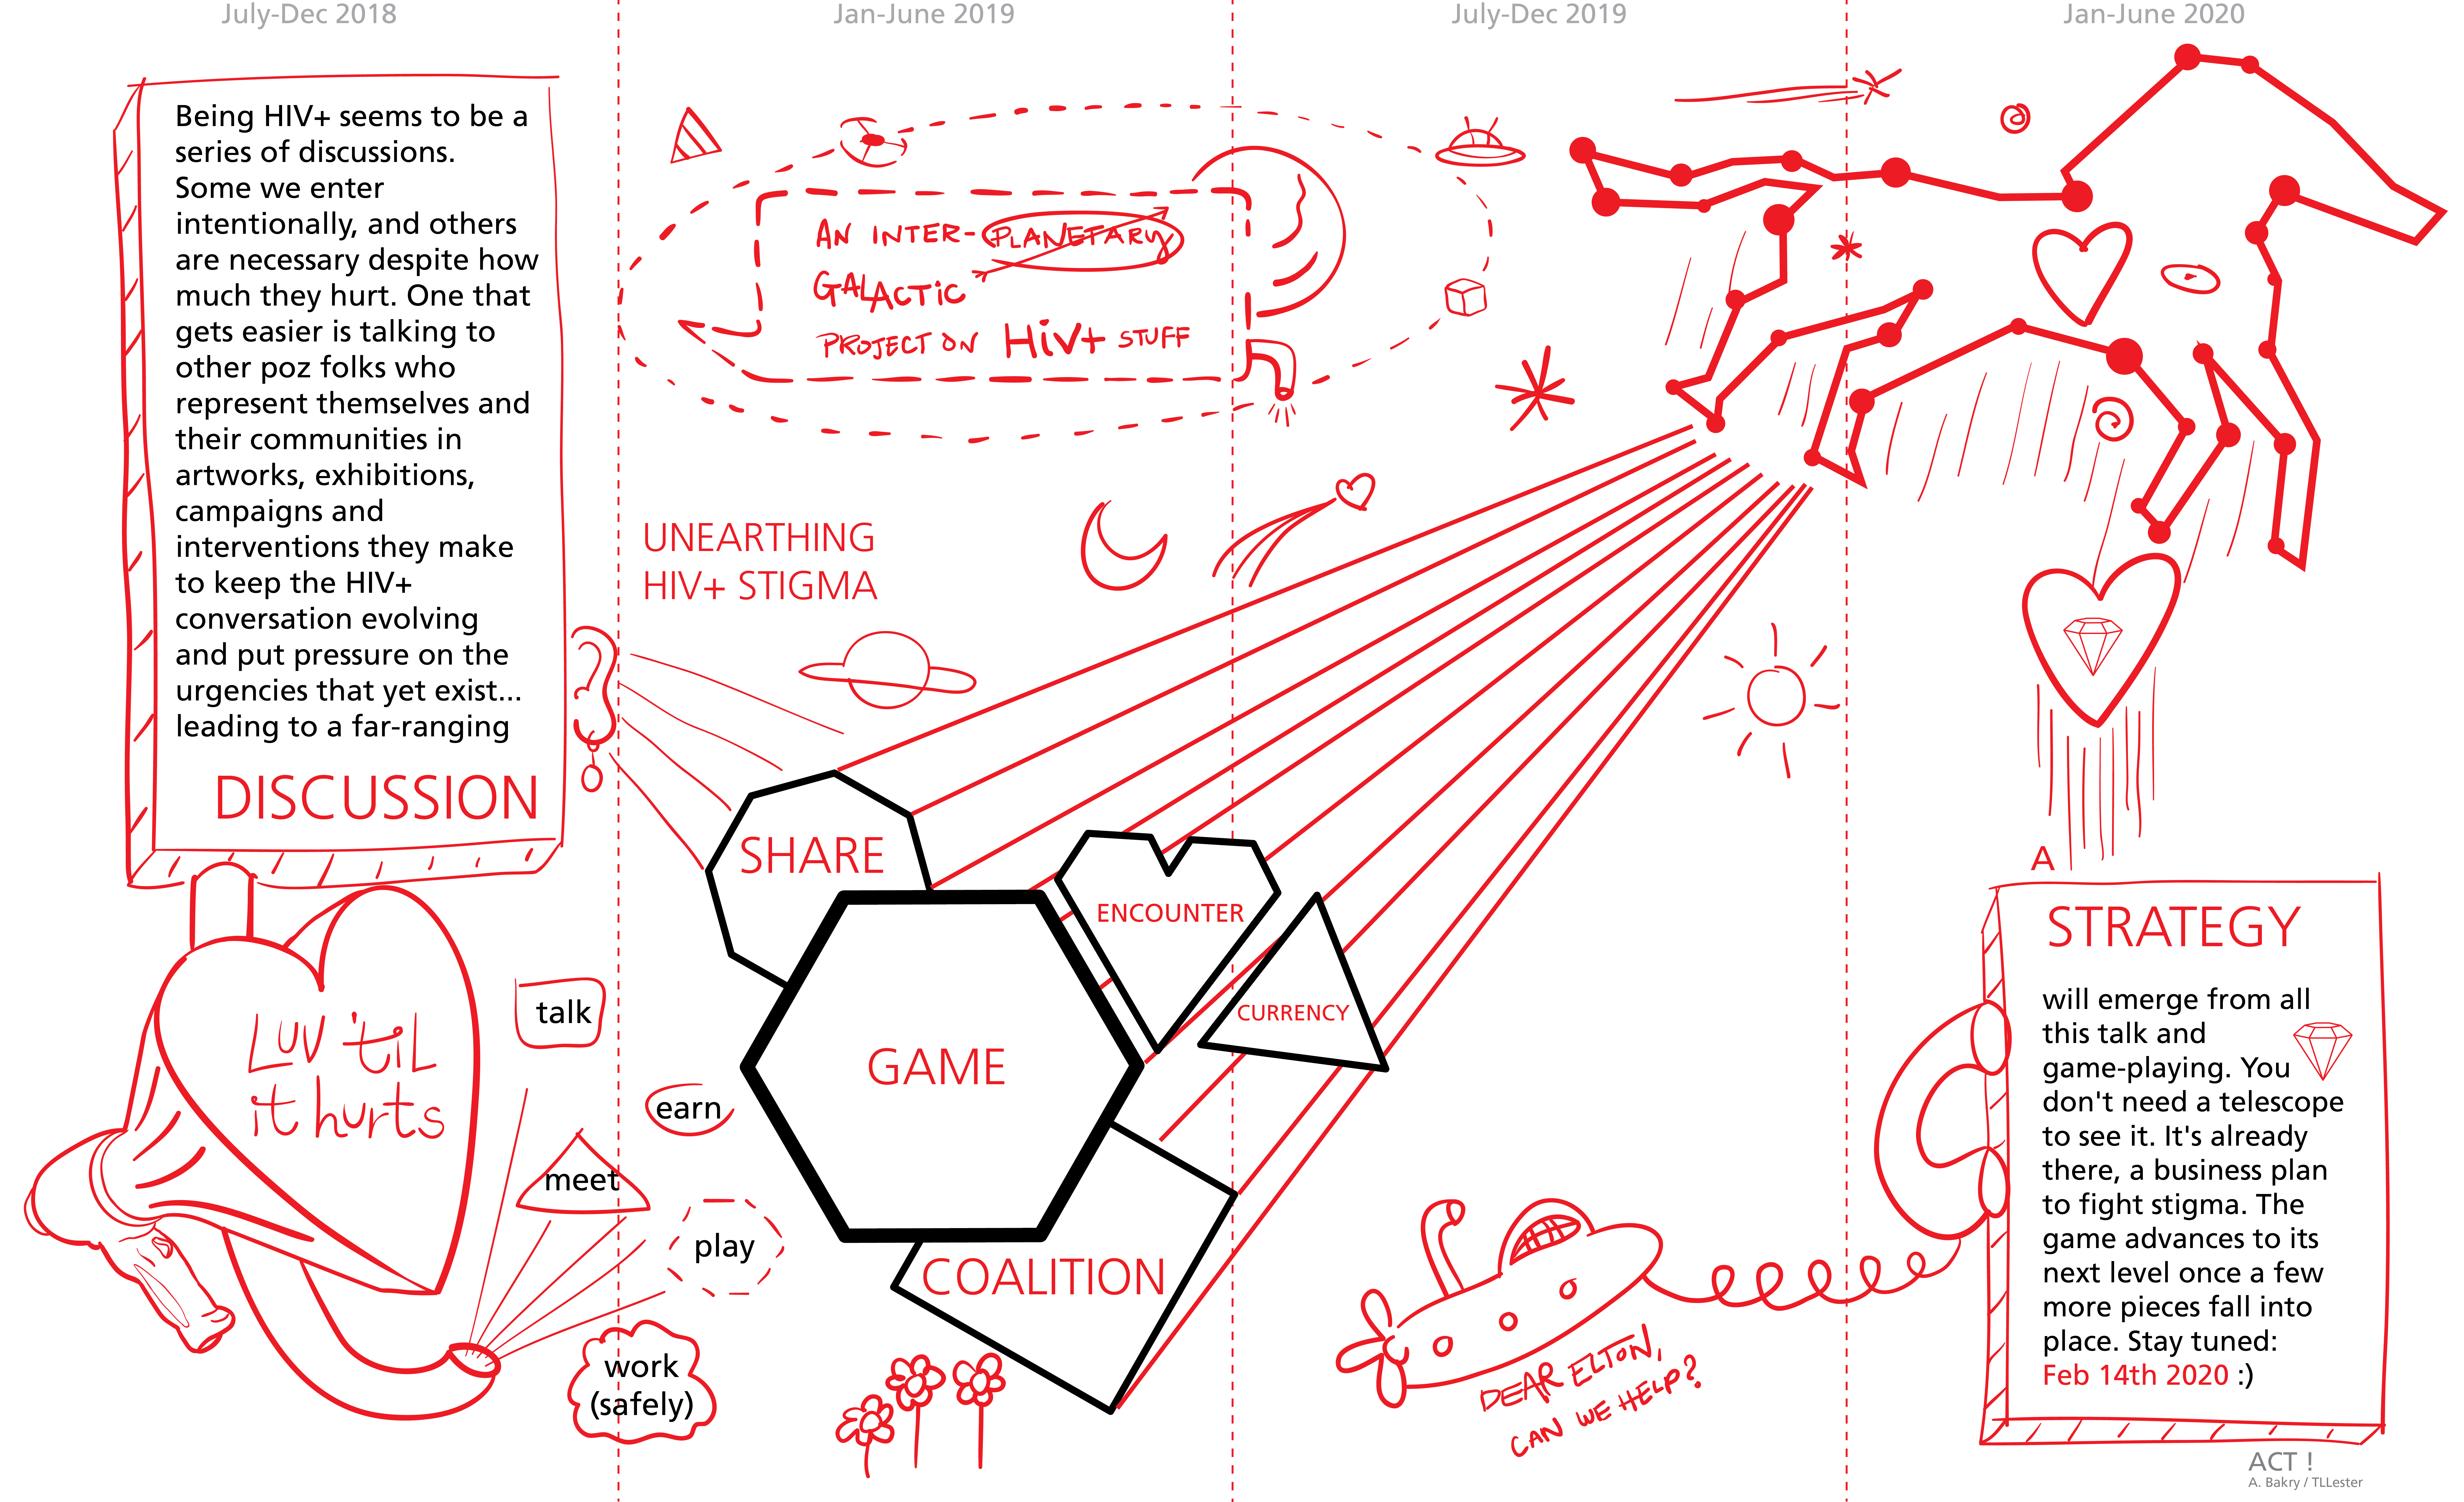 July-Dec 2018
Jan-June 2019
July-Dec 2019
Jan-June 2020
Being HIV+ seems to be a
series of discussions.
Some we enter
intentionally, and others
are necessary despite how
much they hurt. One that
gets easier is talking to
other poz folks who
represent themselves and
their communities in
artworks, exhibitions,
campaigns and
interventions they make
to keep the HIV+
conversation evolving
and put pressure on the
urgencies that yet exist...
leading to a far-ranging
DISCUSSION
LUV 'til
it hurts
talk
earn
meet
play
work
(safely)
AN INTER-PLANETARY
GALACTiC
PROJECT ON HiV+ STUFF
UNEARTHING
HIV+ STIGMA
SHARE
ENCOUNTER
CURRENCY
GAME
COALITION
DEAR ELTON,
CAN WE HELP?
A
STRATEGY
will emerge from all
this talk and
game-playing. You
don't need a telescope
to see it. It's already
there, a business plan
to fight stigma. The
game advances to its
next level once a few
more pieces fall into
place. Stay tuned:
Feb 14th 2020 :)
ACT !
A. Bakry / TLLester